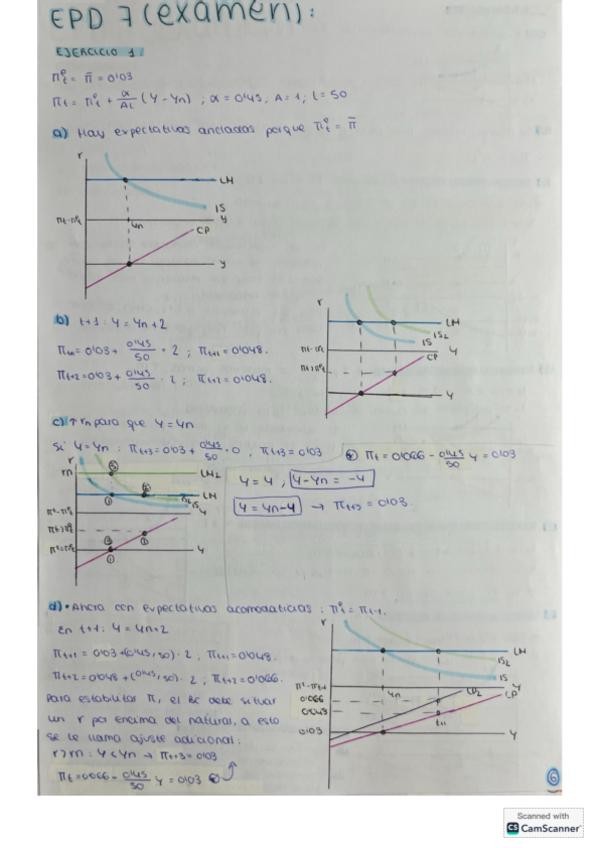 EPD 7 (examen):
EJERCICIO 1
πᵉt = π̄ = 0'03
πt = πᵉt + α/AL (Y - Yn) ; α = 0'45, A = 1 ; L = 50
a) Hay expectativas ancladas porque πᵉt = π̄
r
LM
IS
Yn
Y
πt - πᵉt
CP
Y
b) t+1 : Y = Yn + 2
πt+1 = 0'03 + 0'45/50 · 2 ; πt+1 = 0'048.
πt+2 = 0'03 + 0'45/50 · 2 ; πt+2 = 0'048.
r
LM
IS2
IS
Y
CP
Y
c) ↑ rn para que Y = Yn
Si Y = Yn : πt+3 = 0'03 + 0'45/50 · 0 , πt+3 = 0'03
πt = 0'066 - 0'45/50 Y = 0'03
Y = 4 ; Y - Yn = -4
Y = Yn - 4 → πt+3 = 0'03
r
rn
LM2
LM
IS2
IS
Y
Y
d) • Ahora con expectativas acomodaticias : πᵉt = πt-1.
En t+1 : Y = Yn + 2
πt+1 = 0'03 + (0'45/50) · 2 ; πt+1 = 0'048.
πt+2 = 0'048 + (0'45/50) · 2 ; πt+2 = 0'066.
Para estabilizar π, el BC debe situar
un r por encima del natural, a esto
se le llama ajuste adicional:
r > rn : Y < Yn → πt+3 = 0'03
πt = 0'066 - 0'45/50 Y = 0'03
r
LM
IS2
IS
Yn
Y
CP2
CP
0'066
0'03
Y
6
Scanned with
CS CamScanner